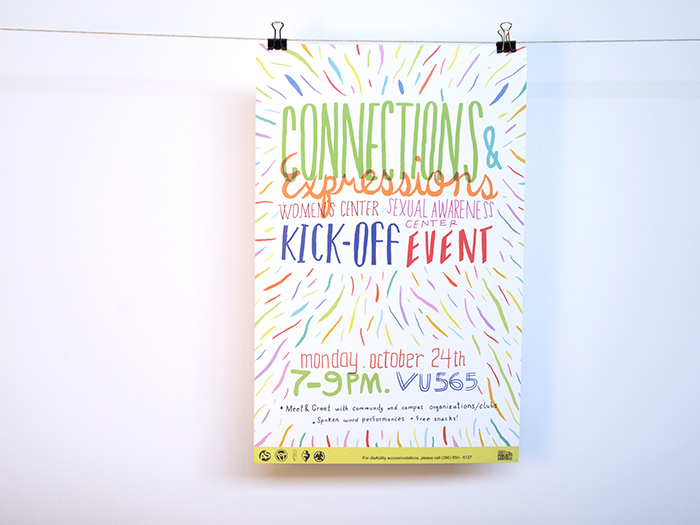 CONNECTIONS &
Expressions
WOMEN'S CENTER SEXUAL AWARENESS
CENTER
KICK-OFF EVENT
monday. october 24th
7-9PM. VU565
• Meet & Greet with community and campus organizations/clubs
• Spoken word performances • Free snacks!
For disAbility accommodations, please call (360) 650 - 6137